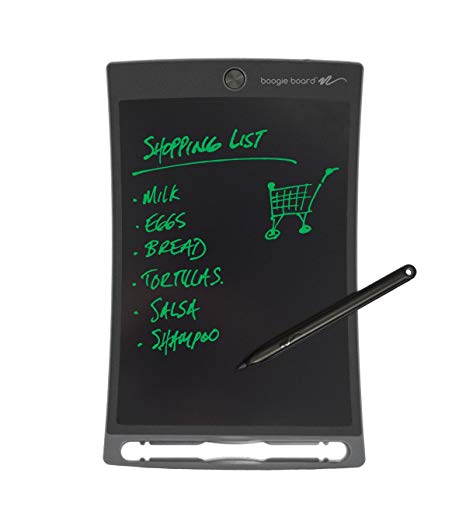 boogie board™
SHOPPING LIST
· MILK
· EGGS
· BREAD
· TORTILLAS.
· SALSA
· SHAMPOO